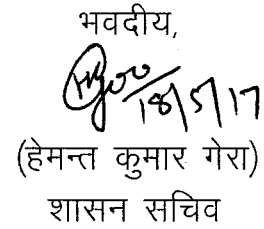 भवदीय,
18/5/17
(हेमन्त कुमार गेरा)
शासन सचिव